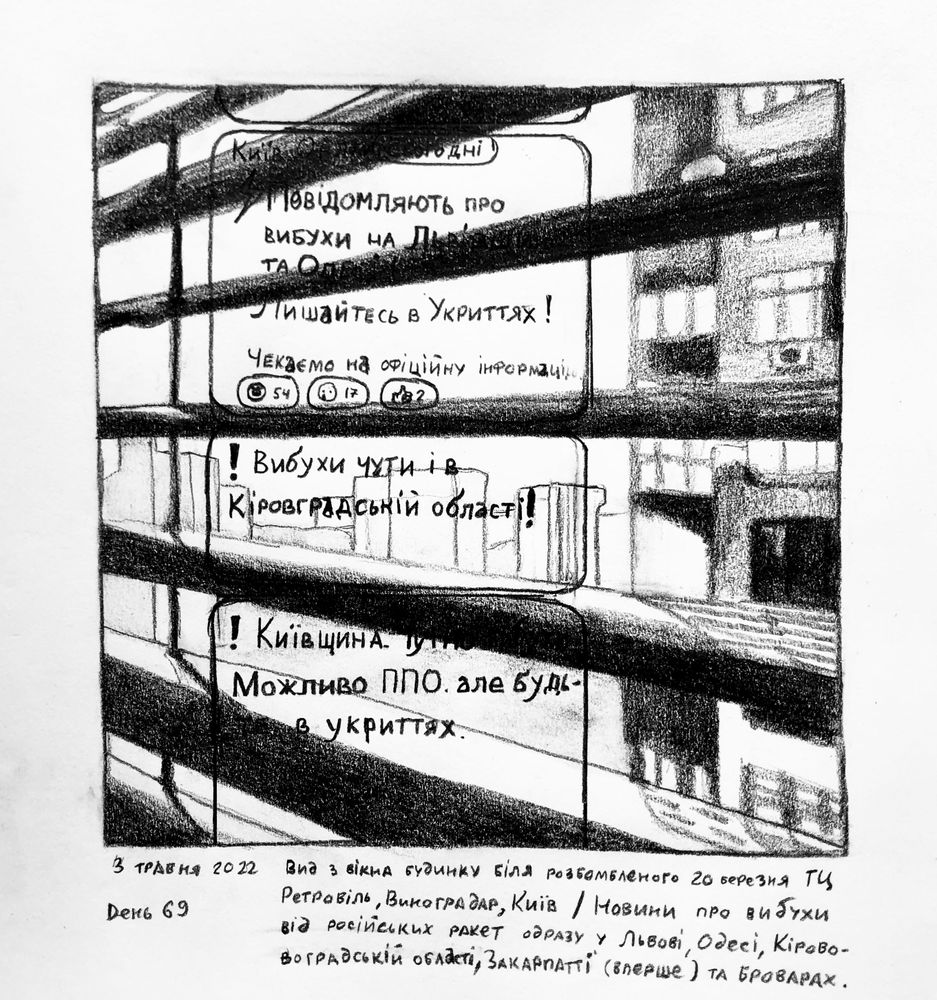 Київ сьогодні!
Повідомляють про
вибухи на
та
Лишайтесь в Укриттях!
Чекаємо на офіційну інформацію
54 17 2
! Вибухи чути і в
Кіровградській області!
! Київщина.
Можливо ППО. але будь-
в укриттях.
3 травня 2022 Вид з вікна будинку біля розбомбленого 20 березня ТЦ
Ретровіль, Виноградар, Київ / Новини про вибухи
День 69 від російських ракет одразу у Львові, Одесі, Кірово-
воградській області, Закарпатті (вперше) та Броварах.